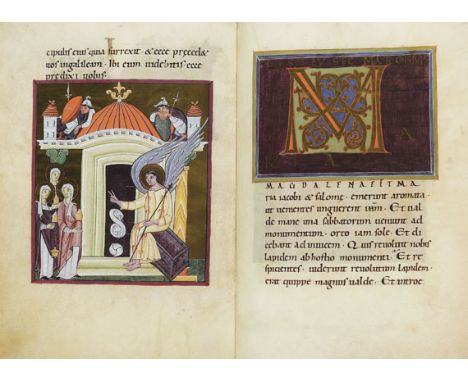 cipulis eius quia surrexit · & ecce precedet
vos ingalileam · Ibi eum videbitis ecce
predixi vobis ·
M
MAGDALENA ET MA
ria iacobi & salome · emerunt aromata ·
ut venientes unguerent · Et val
de mane una sabbatorum veniunt ad
monumentum · orto iam sole · Et di
cebant ad invicem · Quis revolvet nobis
lapidem ab hostio monumenti · Et re
spicientes · viderunt revolutum lapidem ·
erat quippe magnus valde · Et introe